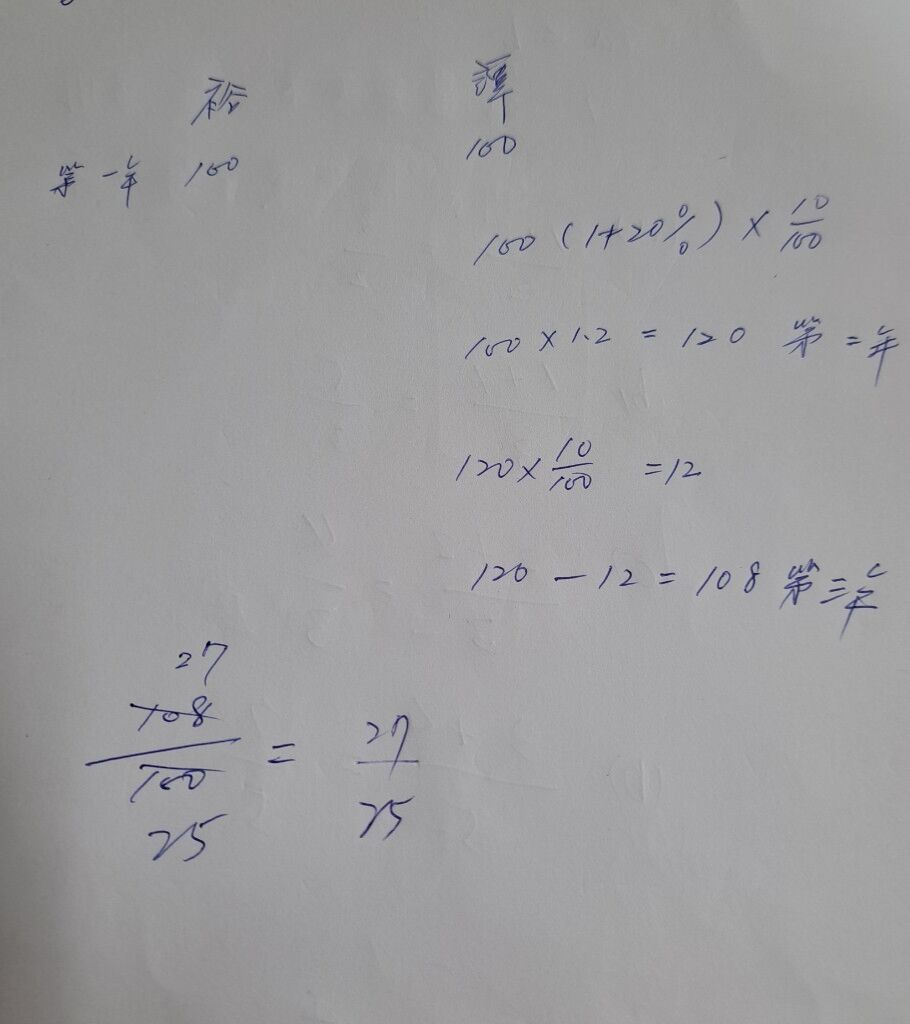 裕 譚
第一年 100 100
100 (1+20%) × 10/100
100 × 1.2 = 120 第二年
120 × 10/100 = 12
120 - 12 = 108 第三年
27
108/100 = 27/25
25